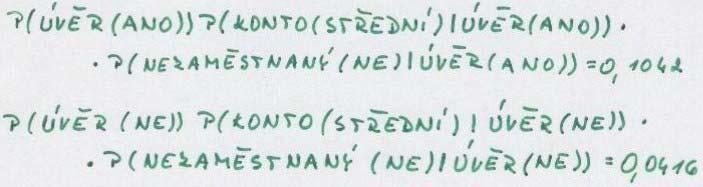 P(ÚVĚR(ANO)) P(KONTO(STŘEDNÍ)|ÚVĚR(ANO)) ·
· P(NEZAMĚSTNANÝ(NE)|ÚVĚR(ANO)) = 0,1042
P(ÚVĚR (NE)) P(KONTO(STŘEDNÍ) | ÚVĚR(NE)) ·
· P(NEZAMĚSTNANÝ (NE)|ÚVĚR(NE)) = 0,0416